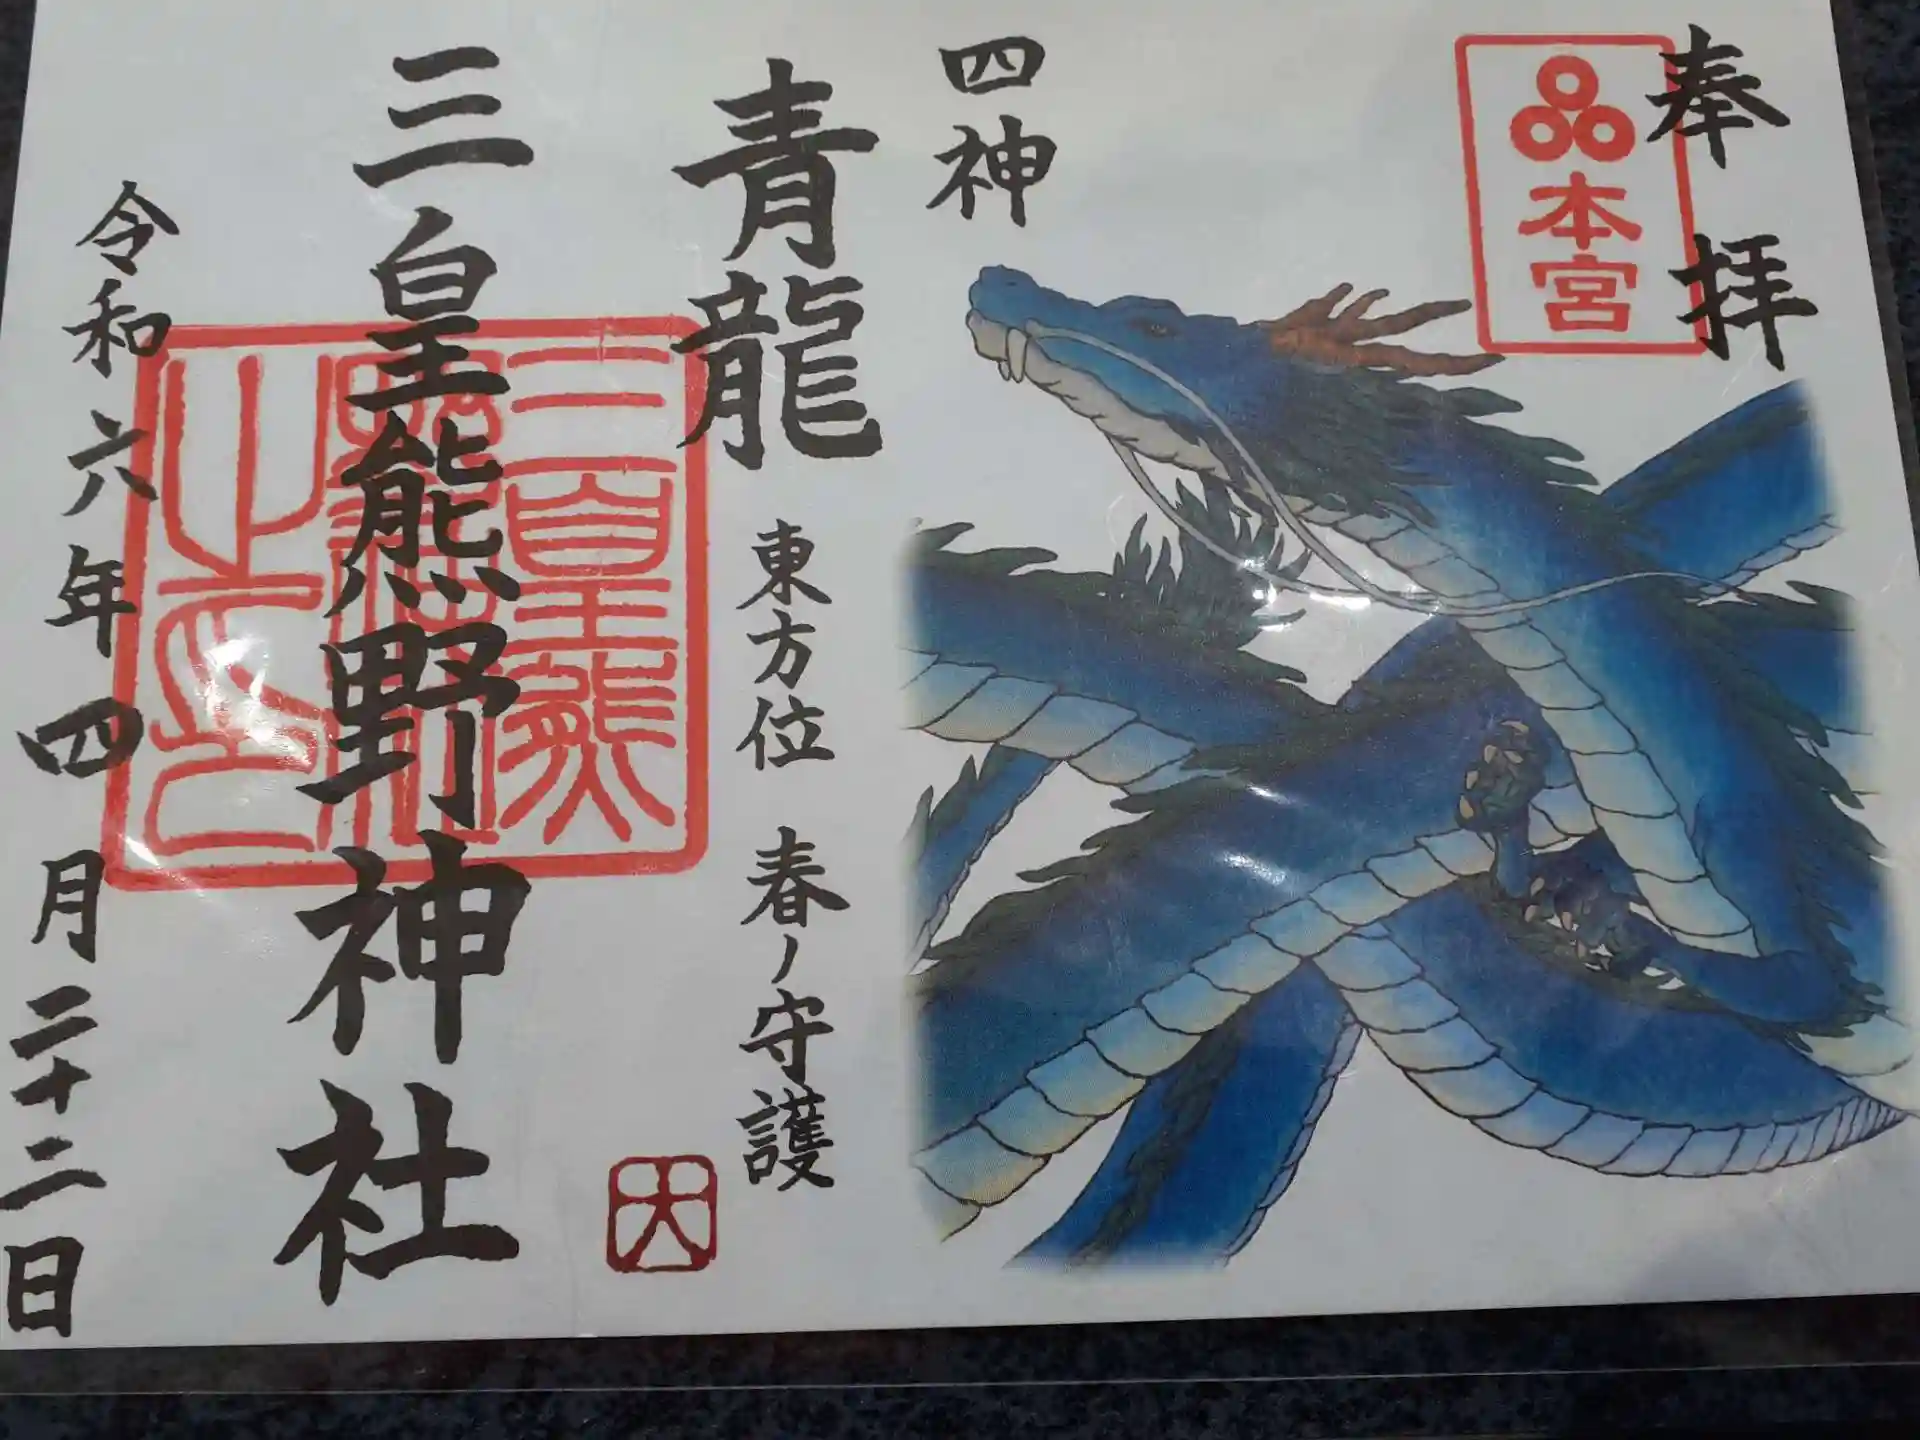 奉拝
本宮
四神
青龍
東方位 春ノ守護
三皇熊野神社
三皇熊
野神社
之印
令和六年四月二十二日